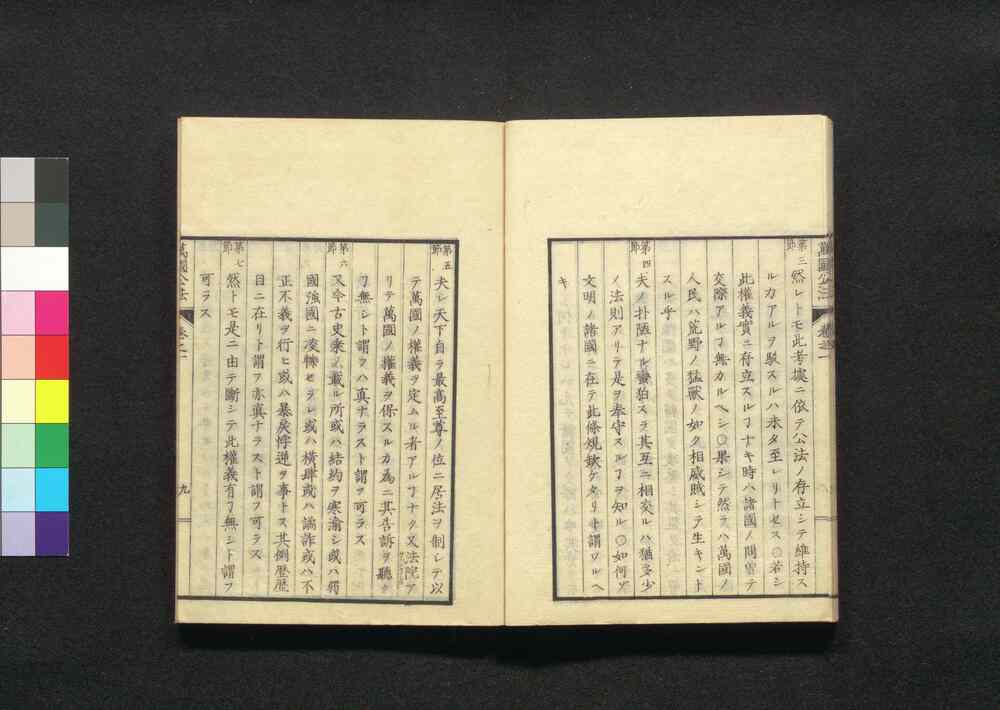 萬國公法
卷之一
第三節
然レトモ此考據ニ依テ公法ノ存立シテ維持ス
ルカアルヲ駁スルハ未タ至レリトセス〇若シ
此權義實ニ存立スルヿナキ時ハ諸國ノ間曽テ
交際アルヿ無カルヘシ〇果シテ然ラハ萬國ノ
人民ハ荒野ノ猛獸ノ如ク相威賊シテ生キント
スル乎
第四節
夫ノ朴陋ナル蠻狛スラ其互ニ相交ルハ猶多少
ノ法則アリテ是ヲ奉守スルヿヲ知ル〇如何ソ
文明ノ諸國ニ在テ此條規缺ケタリト謂フルヘ
キ
第五節
夫レ天下自ラ最高至尊ノ位ニ居法ヲ制シテ以
テ萬國ノ權義ヲ定ムル者アルヿナク又法院ア
リテ萬國ノ權義ヲ保スルカ為ニ其告訴ヲ聽ク
ヿ無シト謂フハ真ナラスト謂ヲ可ラス
第六節
又今古史乘ノ載ル所或ハ結約ヲ寒渝シ或ハ弱
國強國ニ凌轢セラレ或ハ橫肆或ハ譎詐或ハ不
正不義ヲ行ヒ或ハ暴戾悖逆ヲ事トス其例歷歷
目ニ在リト謂フ亦真ナラスト謂フ可ラス
第七節
然トモ是ニ由テ斷シテ此權義有ヿ無シト謂フ
可ラス
萬國公法
卷之一
九